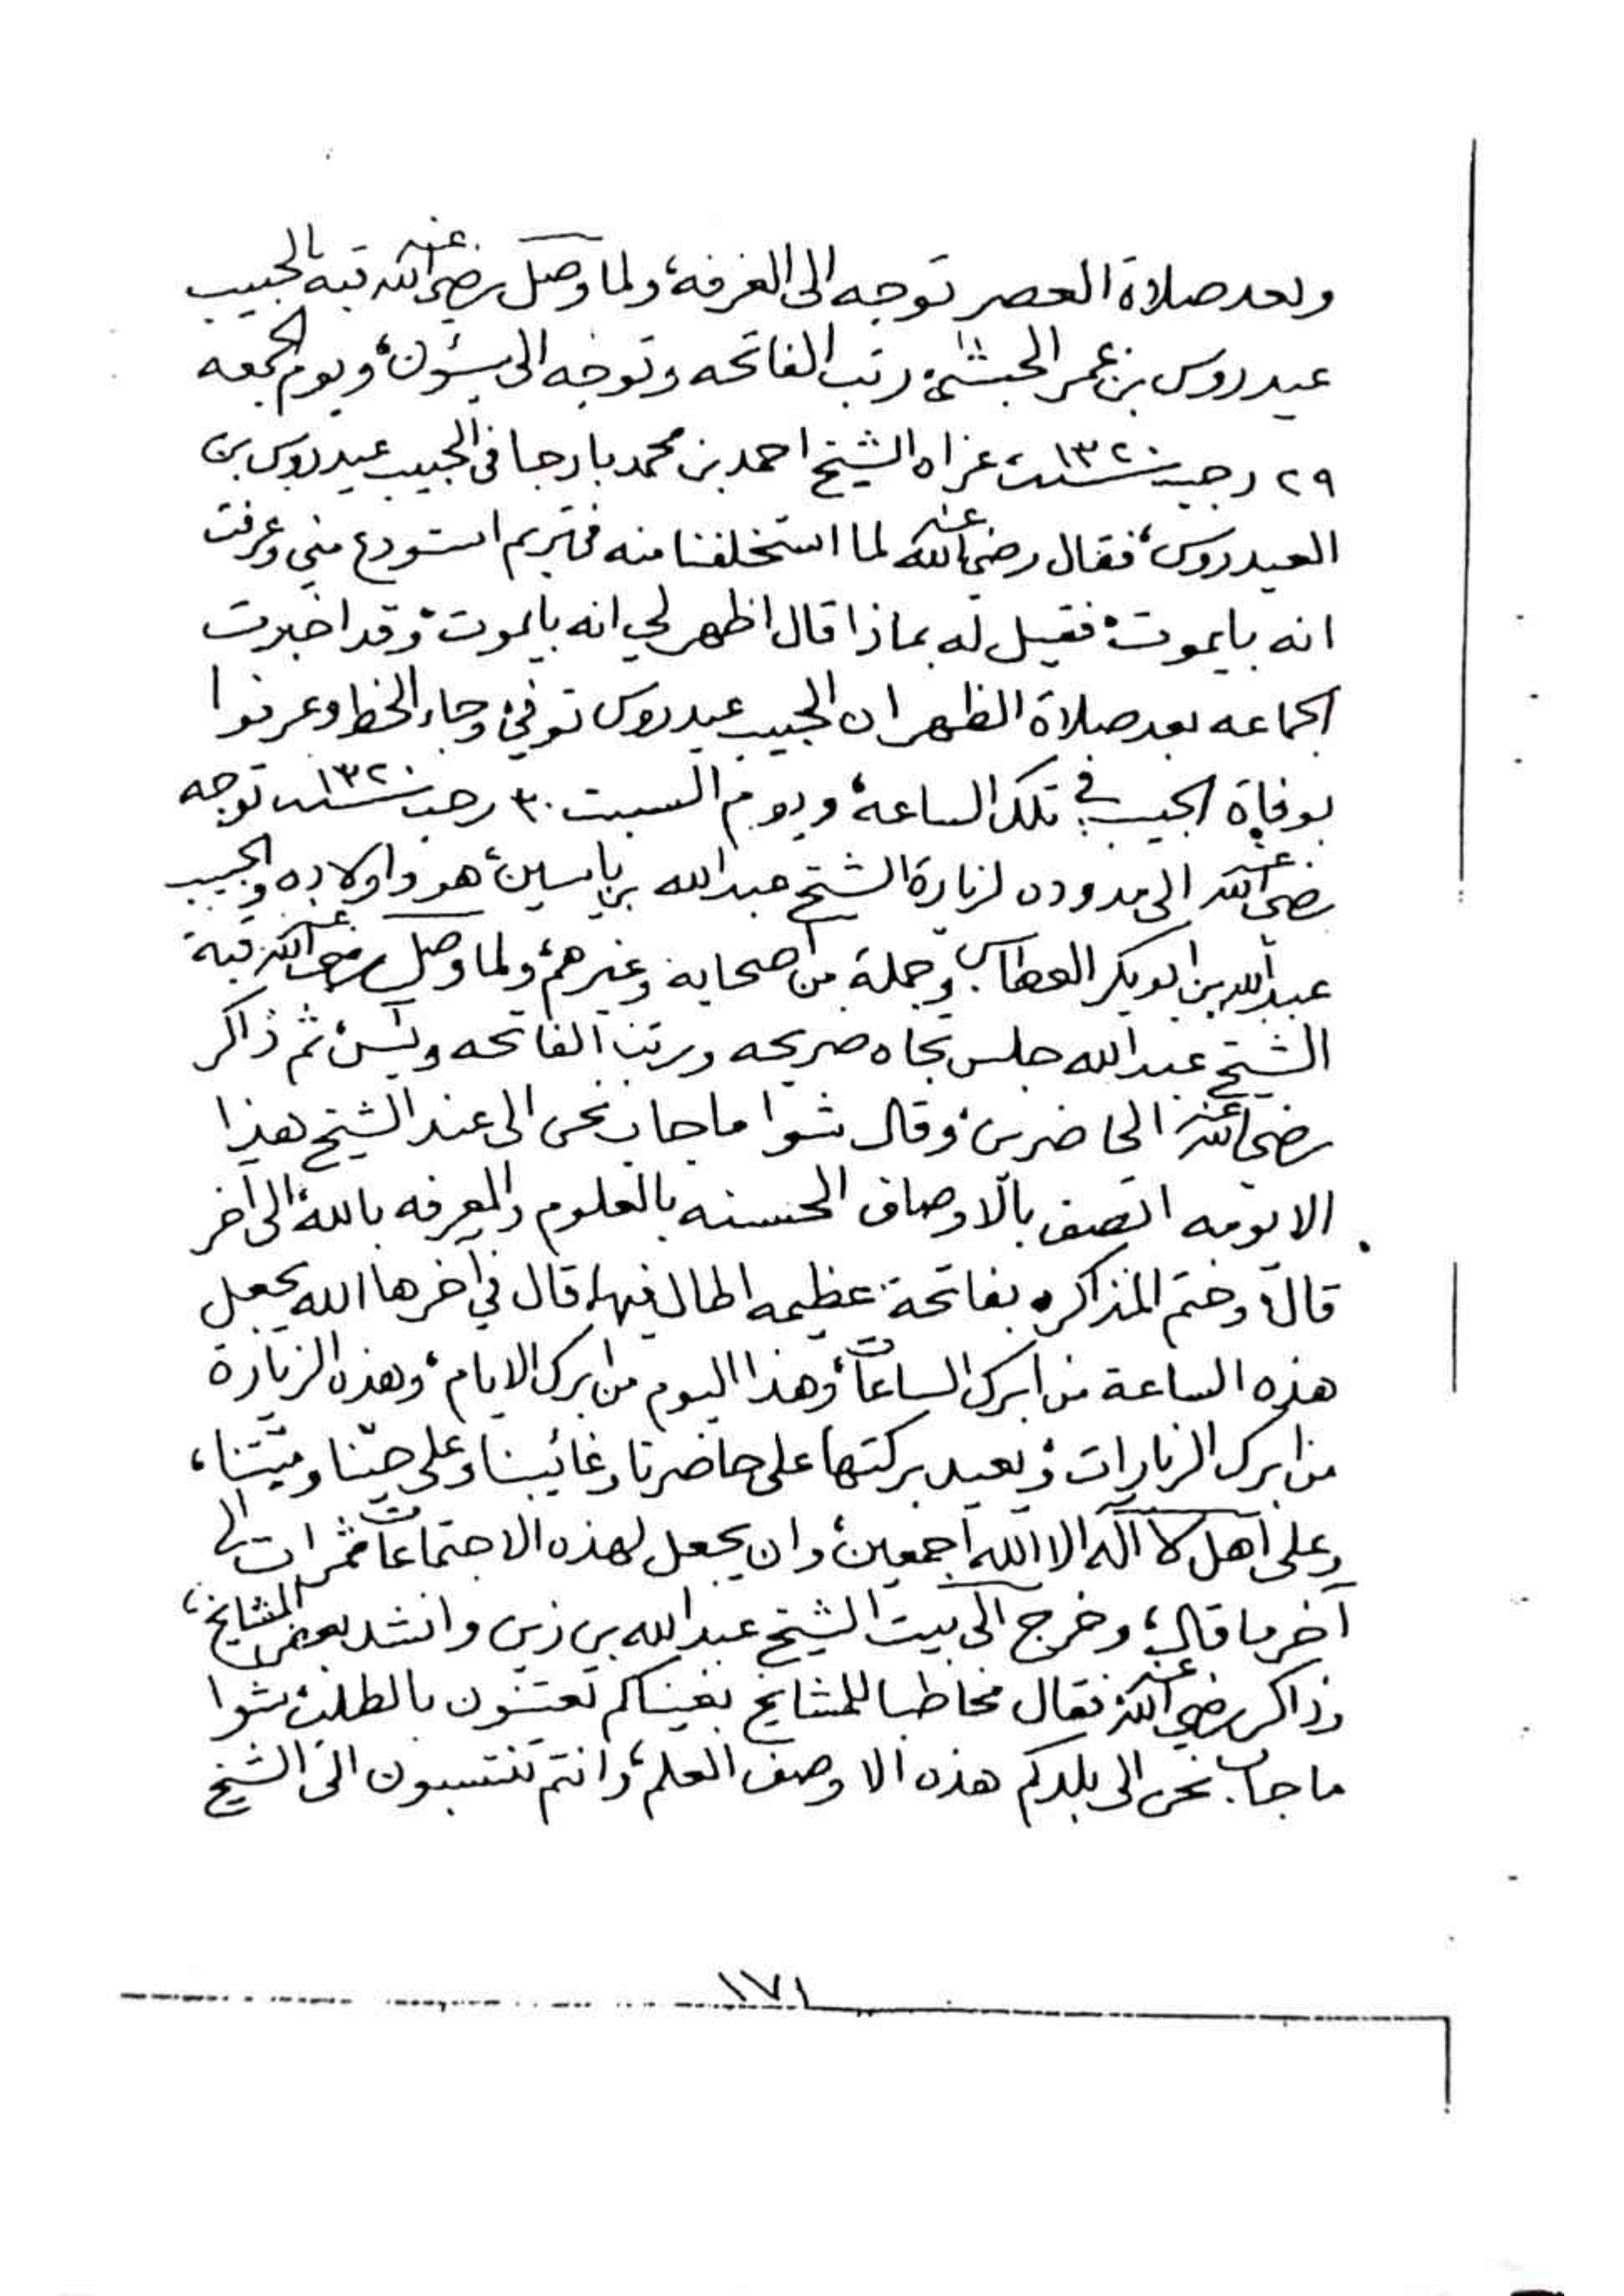 وبعد صلاة العصر توجه الى الغرفه، ولما وصل رضي الله عنه قبة الحبيب
عيدروس بن عمر الحبشي، رتب الفاتحه وتوجه الى سيئون، ويوم الجمعه
٢٩ رجب سنة ١٣٢٠ عزاه الشيخ احمد بن محمد بارجا في الحبيب عيدروس بن
العيدروس، فقال رضي الله عنه لما استخلفنا منه في تريم استودع مني وعرفت
انه بايموت، فقيل له بماذا قال اظهر لي انه بايموت، وقد اخبرت
الجماعه بعد صلاة الظهر ان الحبيب عيدروس توفي، وجاء الخط وعرفوا
بوفاة الحبيب في تلك الساعة، ويوم السبت ٣٠ رجب سنة ١٣٢٠ توجه
رضي الله عنه الى مدوده لزيارة الشيخ عبدالله بن ياسين، هو واولاده والحبيب
عبدالله بن ابوبكر العطاس، وجملة من اصحابه وغيرهم، ولما وصل رضي الله عنه قبة
الشيخ عبدالله جلس تجاه ضريحه ورتب الفاتحه ويس، ثم ذاكر
رضي الله عنه الحاضرين، وقال شوا ماجاب نحن الى عند الشيخ هذا
الا يومه اتصف بالاوصاف الحسنه بالعلوم والمعرفه بالله، الى آخر
قال، وختم المذاكره بفاتحة عظيمه اطال فيها، قال في آخرها الله يجعل
هذه الساعة من ابرك الساعات، وهذا اليوم من ابرك الايام، وهذه الزيارة
من ابرك الزيارات، ويعيد بركتها على حاضرنا وغائبنا وعلى حيّنا وميّتنا،
وعلى اهل لا اله الا الله اجمعين، وان يجعل لهذه الاجتماعات ثمرات الى
آخر ما قال، وخرج الى بيت الشيخ عبدالله بن زين وانشد بعض المشايخ،
وذاكر رضي الله عنه فقال مخاطبا للمشايخ بغيناكم تعتنون بالطلب، شوا
ماجاب نحن الى بلدكم هذه الا وصف العلم، وانتم تنتسبون الى الشيخ
١٧١